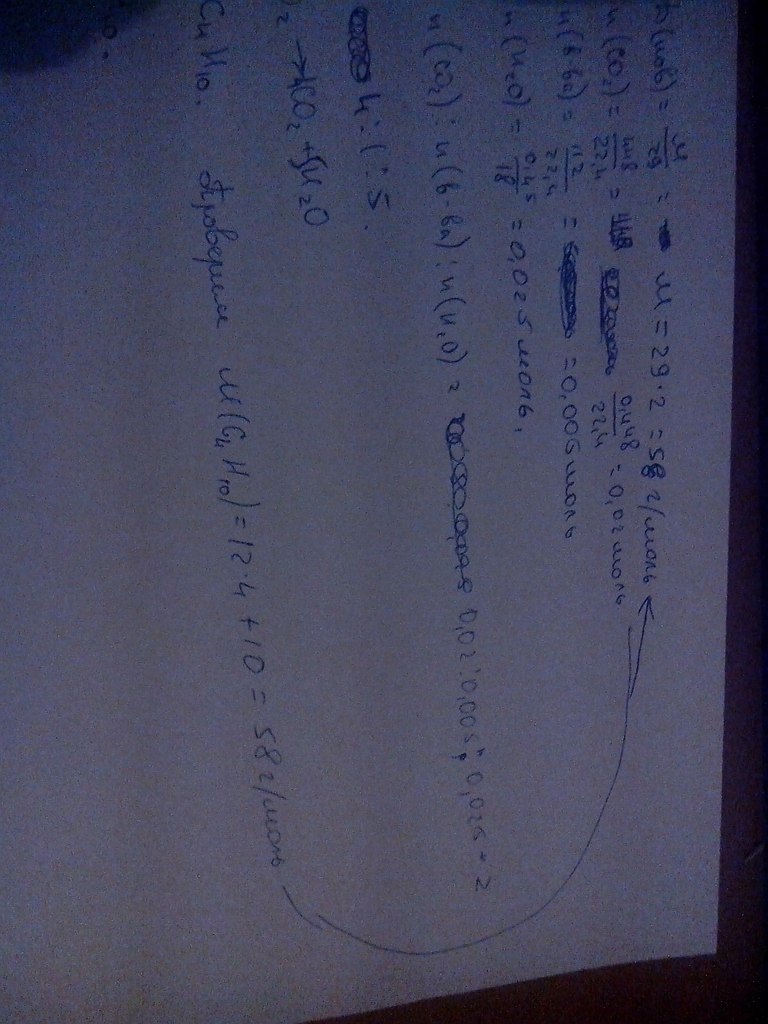 D(пов) = M/29 = M = 29·2 = 58 г/моль
n(CO₂) = 448/22,4 = 0,448/22,4 = 0,02 моль
n(в-ва) = 112/22,4 = = 0,005 моль
n(H₂O) = 0,45/18 = 0,025 моль.
n(CO₂) : n(в-ва) : n(H₂O) = 0,02 : 0,005 : 0,025 = 2
4 : 1 : 5.
O₂ → 4CO₂ + 5H₂O
C₄H₁₀. Проверим M(C₄H₁₀) = 12·4 + 10 = 58 г/моль